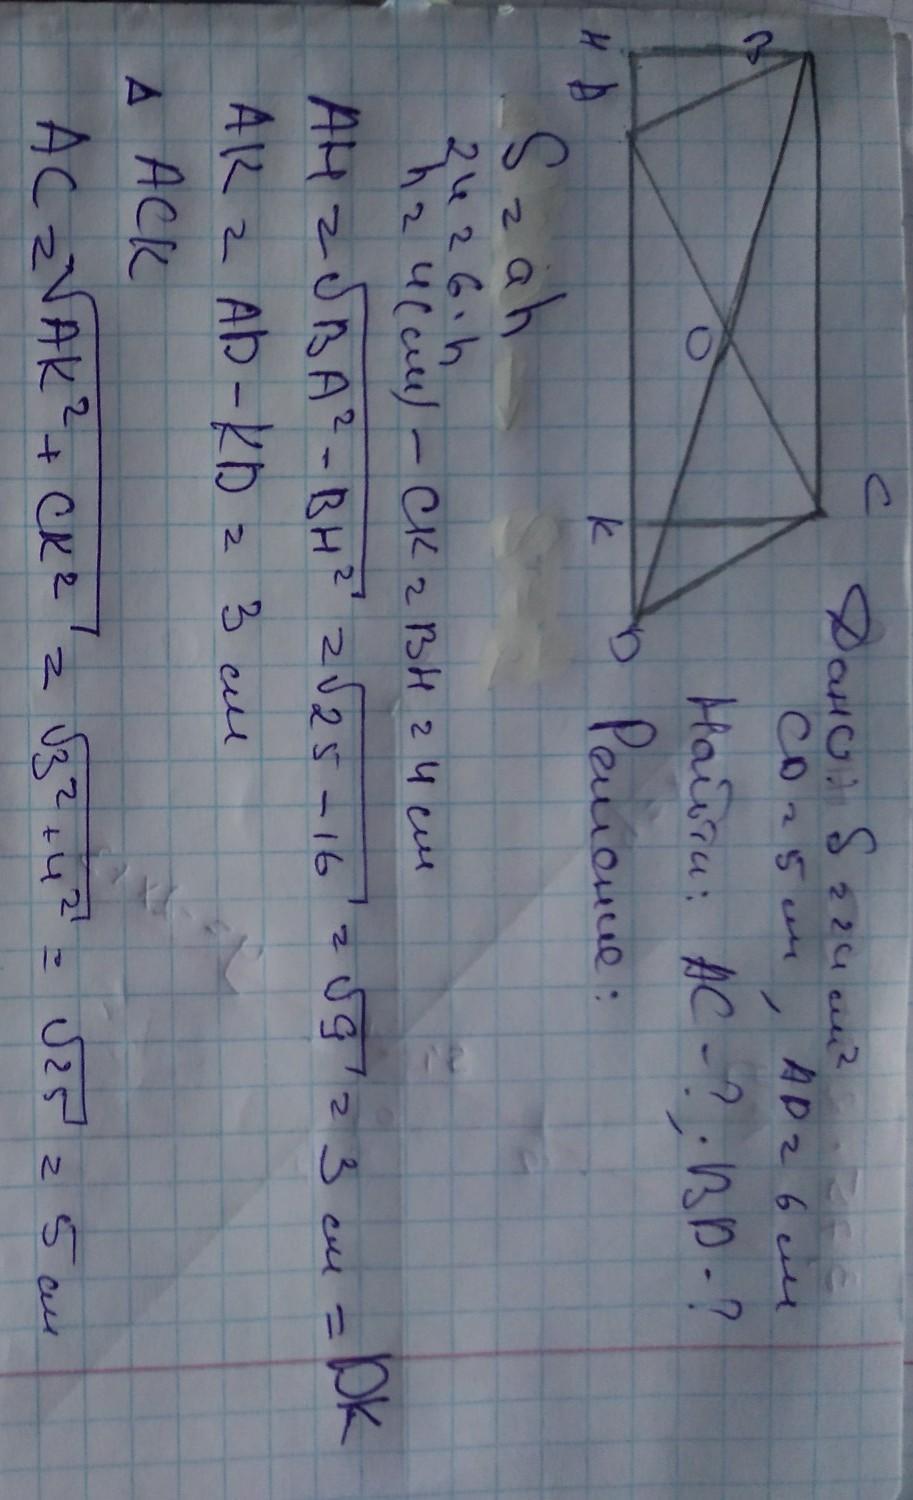 B
C
H A
O
K
D
Дано: S = 24 см²
CD = 5 см, AD = 6 см
Найти: AC - ?, BD - ?
Решение:
S = ah
24 = 6 · h
h = 4 (см) – CK = BH = 4 см
AH = √BA² - BH² = √25 - 16 = √9 = 3 см = DK
AK = AD - KD = 3 см
Δ ACK
AC = √AK² + CK² = √3² + 4² = √25 = 5 см